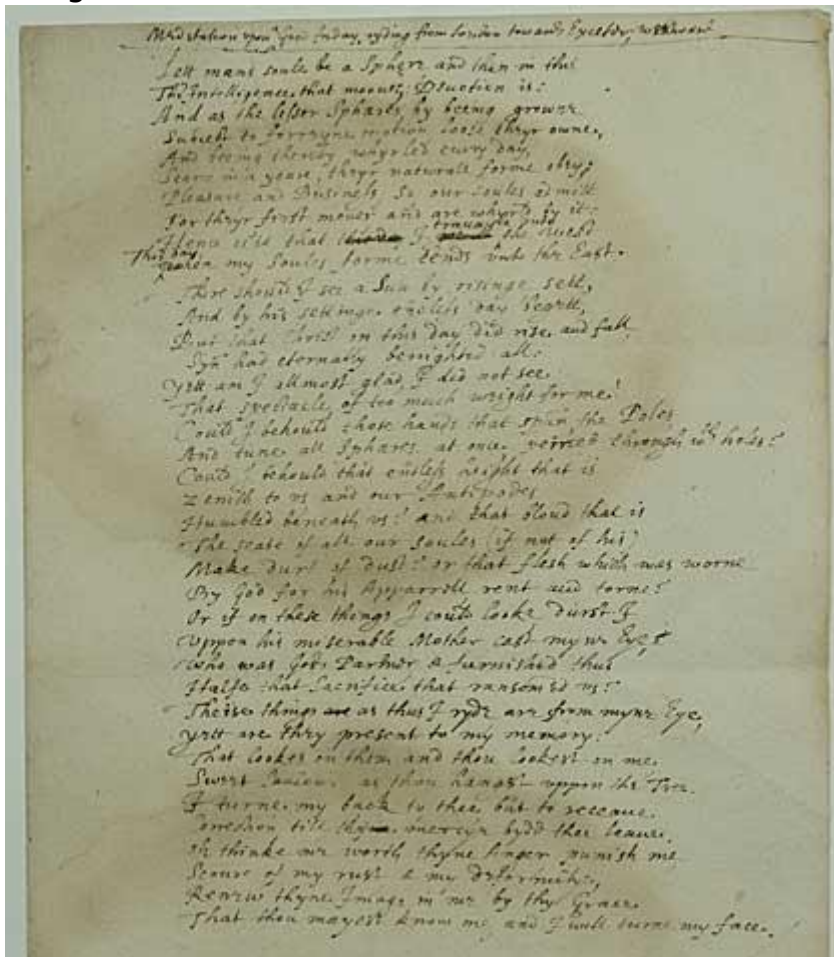 Meditation upon Good friday, ryding from London towards Exceter, westward
Lett mans soule be a Sphere and then in this
The Intelligence, that moves, Devotion is:
And as the lesser Sphares by beeing growne
Subiect to forrayne motion loose theyr owne,
And beeing thereby whyrled every day,
Scarce in a yeare theyr naturall forme obey;
Pleasure and Businesse So our Soules admitt
For theyr first mover and are whyrld by it:
Hence is't that I the West
This day
when my Soules forme bends unto the East.
There should I see a Sun by risinge sett,
And by his settinge endless day begett,
But that Christ on this day did rise and fall
Syn had eternaly benighted all:
Yett am I allmost glad, I did not see
That spectacle, of too much weight for me!
Could I behould those hands that span the Poles
And tune all Sphares at once, peirced through wth holes?
Could I behould that endless height that is
Zenith to us and our Antipodes
Humbled beneath us? and that bloud that is
The seate of all our soules (if not of his)
Make durt of dust? or that flesh which was worne
By God for his Apparrell rent and torne?
Or if on these things I could looke durst I
Uppon his miserable Mother cast myne Eye,
Who was Gods Partner & furnished thus
Halfe that Sacrifice that ransomed us?
Theise things as thus I ryde are from myne Eye,
Yett are they present to my memory:
That lookes on them and thou lookest on me
Sweet Saviour as thou hangst uppon the Tree.
I turne my back to thee but to receave
Correction till mercyes bydd thee leave.
Oh thinke me worth thyne Anger punish me
Scoure of my rust & my deformitie,
Renew thyne Image in me by thy Grace
That thou mayest know me and I will turne my face.